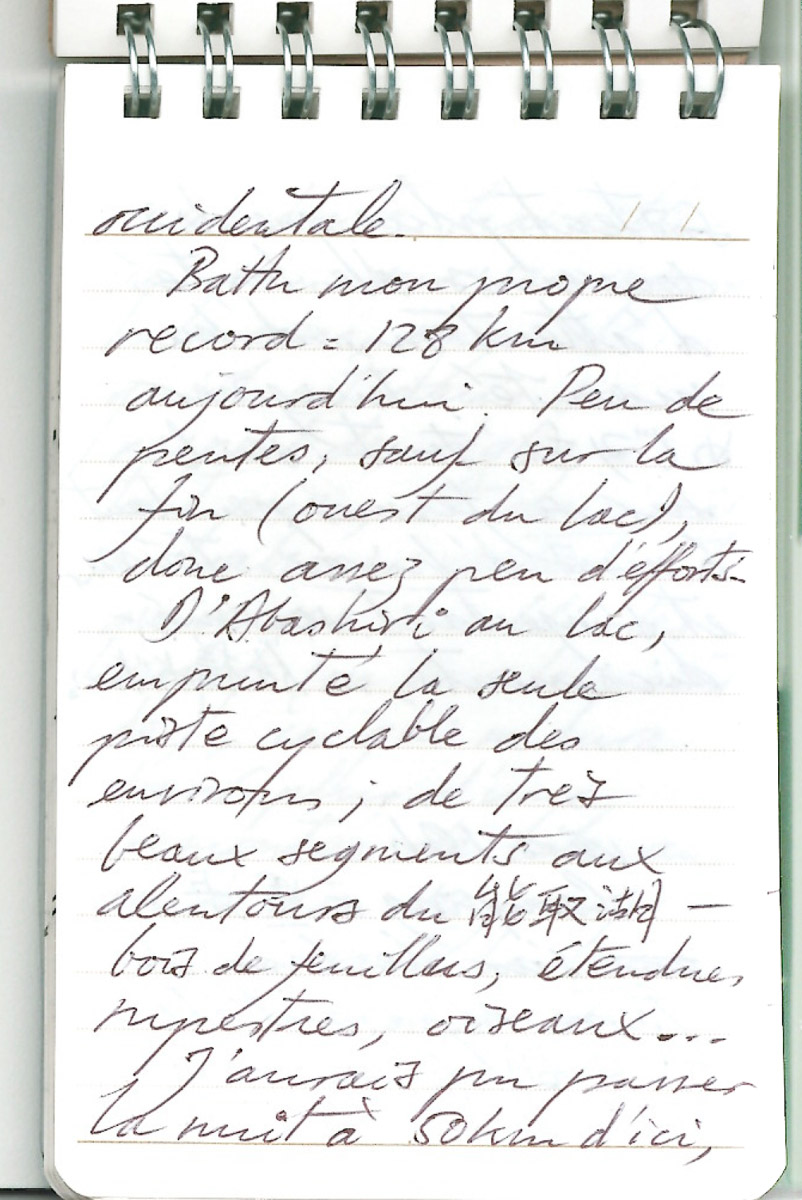 occidentale.
Battu mon propre
record = 128 km
aujourd'hui. Peu de
pentes, sauf sur la
fin (ouest du lac),
donc assez peu d'efforts.
D'Abashiri au lac,
emprunté la seule
piste cyclable des
environs ; de très
beaux segments aux
alentours du 能取湖 —
bois de feuillus, étendues
rupestres, oiseaux...
J'aurais pu passer
la nuit à 50km d'ici,